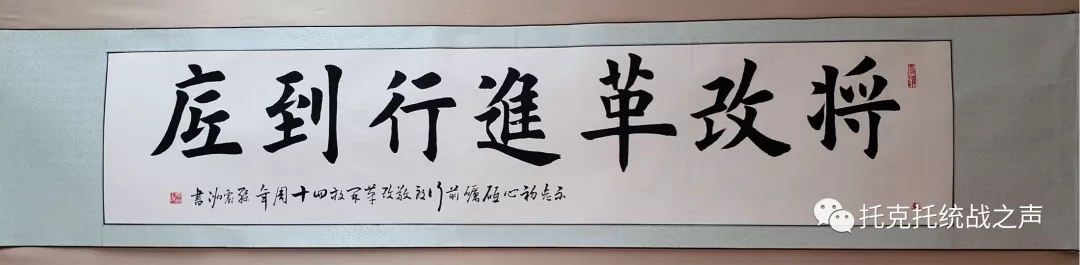 将改革進行到底
不忘初心砥礪前行致敬改革开放四十周年 書
托克托统战之声